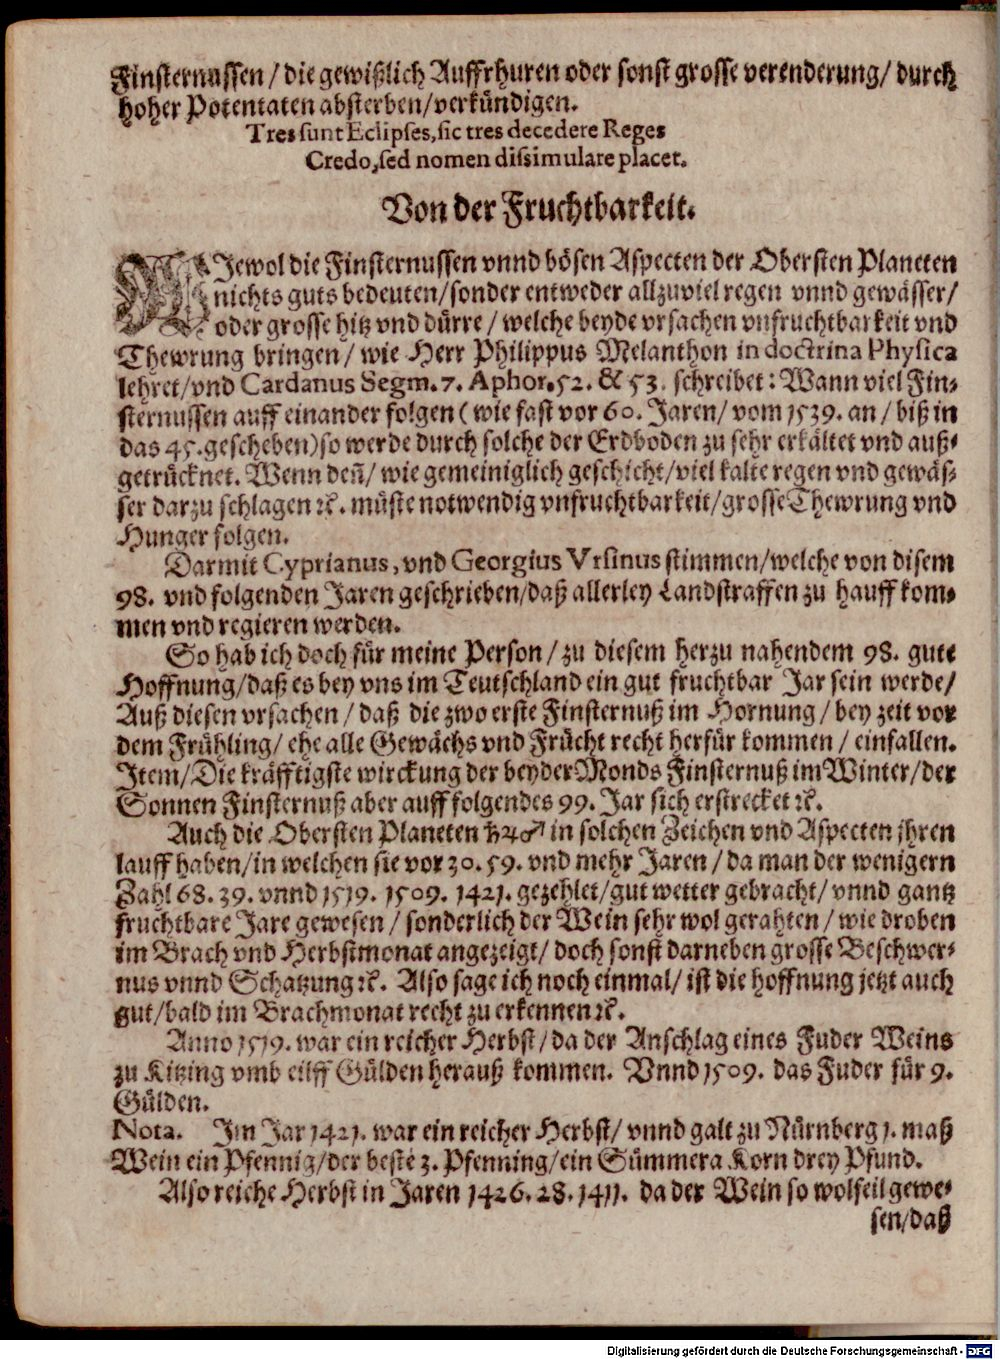 Finsternussen / die gewißlich Auffrhuren oder sonst grosse verenderung/ durch
hoher Potentaten absterben/verkündigen.
Tres sunt Eclipses, sic tres decedere Reges
Credo, sed nomen dissimulare placet.
Von der Fruchtbarkeit.
WJewol die Finsternussen vnnd bösen Aspecten der Obersten Planeten
nichts guts bedeuten/sonder entweder allzuviel regen vnnd gewässer/
oder grosse hitz vnd dürre / welche beyde vrsachen vnfruchtbarkeit vnd
Thewrung bringen/ wie Herr Philippus Melanthon in doctrina Physica
lehret/vnd Cardanus Segm. 7. Aphor. 52. & 53. schreibet: Wann viel Fin-
sternussen auff einander folgen ( wie fast vor 60. Jaren/ vom 1539. an / biß in
das 45. geschehen) so werde durch solche der Erdboden zu sehr erkältet vnd auß-
getrücknet. Wenn deñ/ wie gemeiniglich geschicht/viel kalte regen vnd gewäs-
ser darzu schlagen ꝛc. müste notwendig vnfruchtbarkeit/grosse Thewrung vnd
Hunger folgen.
Darmit Cyprianus, vnd Georgius Vrsinus stimmen/welche von disem
98. vnd folgenden Jaren geschrieben/daß allerley Landstraffen zu hauff kom-
men vnd regieren werden.
So hab ich doch für meine Person / zu diesem herzu nahendem 98. gute
Hoffnung/daß es bey vns im Teutschland ein gut fruchtbar Jar sein werde/
Auß diesen vrsachen / daß die zwo erste Finsternuß im Hornung / bey zeit vor
dem Frühling/ ehe alle Gewächs vnd Frücht recht herfür kommen / einfallen.
Item/Die kräfftigste wirckung der beyder Monds Finsternuß im Winter/der
Sonnen Finsternuß aber auff folgendes 99. Jar sich erstrecket ꝛc.
Auch die Obersten Planeten ♄♃♂ in solchen Zeichen vnd Aspecten jhren
lauff haben/in welchen sie vor 30. 59. vnd mehr Jaren / da man der wenigern
Zahl 68. 39. vnnd 1519. 1509. 1421. gezehlet/gut wetter gebracht/ vnnd gantz
fruchtbare Jare gewesen / sonderlich der Wein sehr wol gerahten / wie droben
im Brach vnd Herbstmonat angezeigt/ doch sonst darneben grosse Beschwer-
nus vnnd Schatzung ꝛc. Also sage ich noch einmal/ ist die hoffnung jetzt auch
gut/bald im Brachmonat recht zu erkennen ꝛc.
Anno 1519. war ein reicher Herbst/ da der Anschlag eines Fuder Weins
zu Kitzing vmb eilff Gülden herauß kommen. Vnnd 1509. das Fuder für 9.
Gülden.
Nota. Im Jar 1421. war ein reicher Herbst/ vnnd galt zu Nürnberg 1. maß
Wein ein Pfennig/der beste 3. Pfenning/ein Sümmera Korn drey Pfund.
Also reiche Herbst in Jaren 1426. 28. 1411. da der Wein so wolfeil gewe-
sen/daß
Digitalisierung gefördert durch die Deutsche Forschungsgemeinschaft - DFG